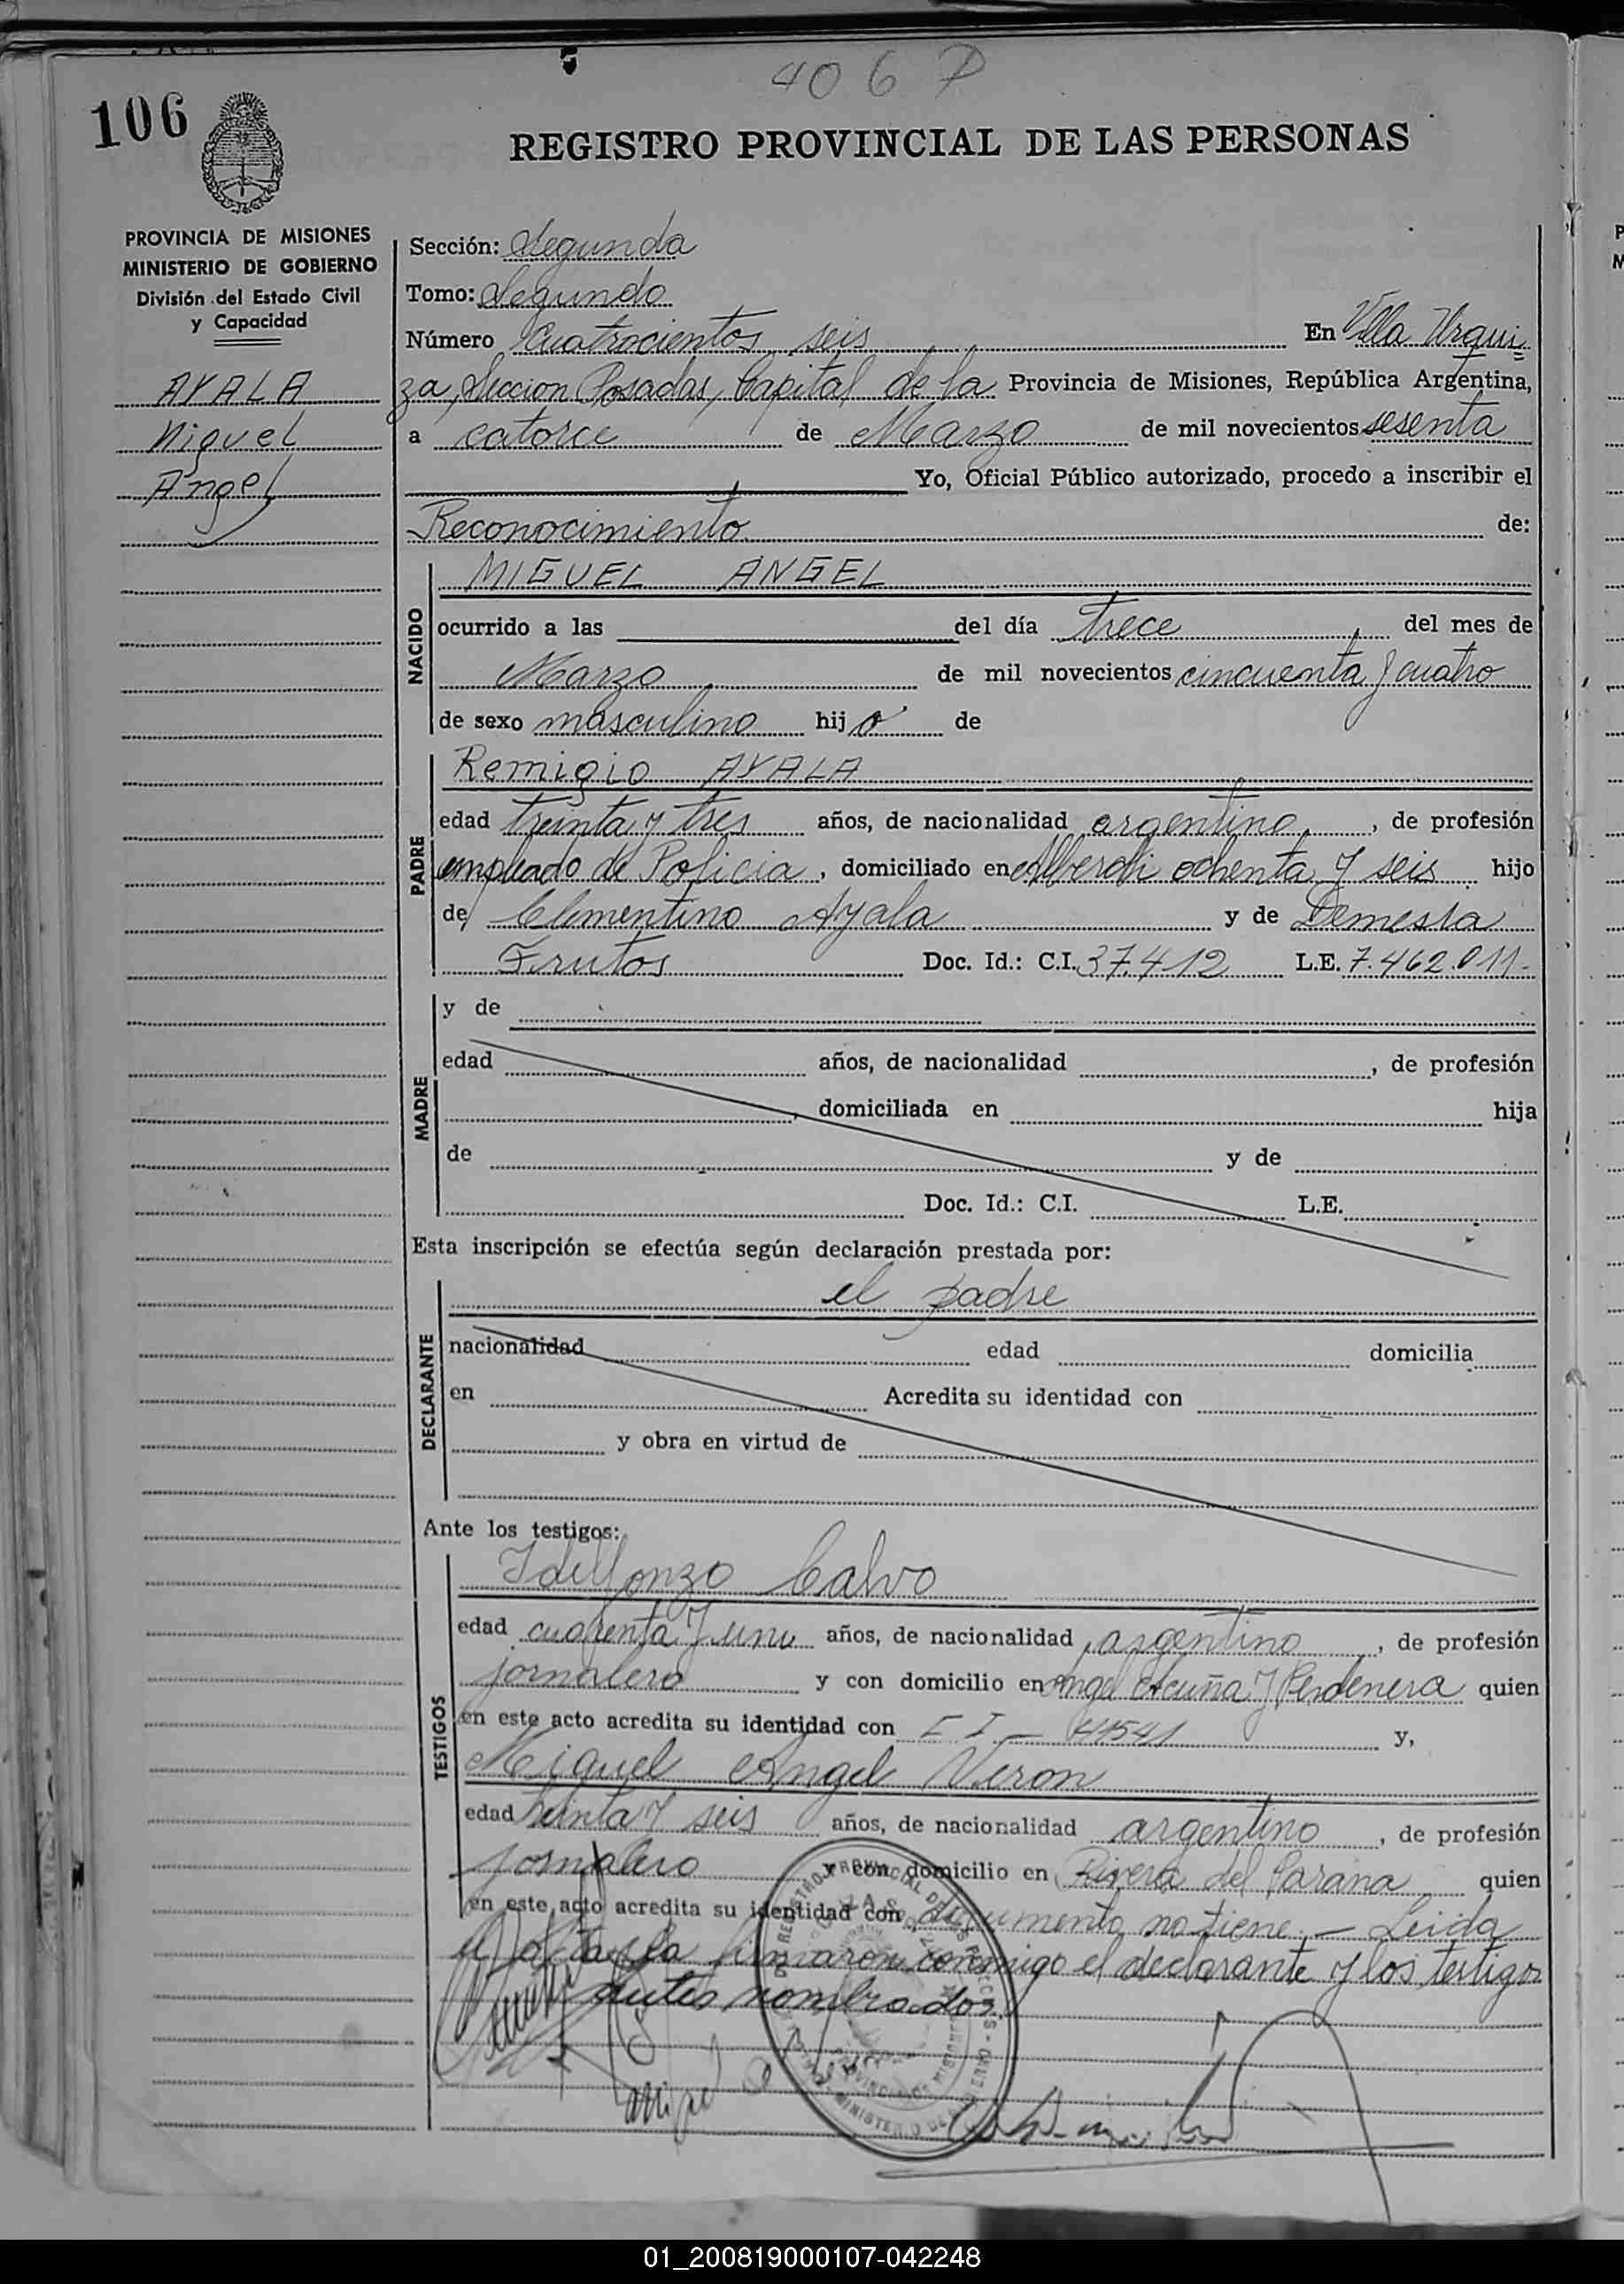 406 P
106
REGISTRO PROVINCIAL DE LAS PERSONAS
PROVINCIA DE MISIONES
MINISTERIO DE GOBIERNO
División del Estado Civil
y Capacidad
AYALA
Miguel
Angel
Sección: Segunda
Tomo: Segundo
Número Cuatrocientos seis En Villa Urqui
za, Seccion Posadas, Capital de la Provincia de Misiones, República Argentina,
a catorce de Marzo de mil novecientos sesenta
Yo, Oficial Público autorizado, procedo a inscribir el
Reconocimiento de:
NACIDO
MIGUEL ANGEL
ocurrido a las del día trece del mes de
Marzo de mil novecientos cincuenta y cuatro
de sexo masculino hijo de
PADRE
Remigio AYALA
edad treinta y tres años, de nacionalidad argentino, de profesión
empleado de Policia, domiciliado en Alberdi ochenta y seis hijo
de Clementino Ayala y de
Frutos Doc. Id.: C.I. 37.412 L.E. 7.462.011-
MADRE
y de
edad años, de nacionalidad , de profesión
, domiciliada en hija
de y de
Doc. Id.: C.I. L.E.
Esta inscripción se efectúa según declaración prestada por:
DECLARANTE
el padre
nacionalidad edad domicilia
en Acredita su identidad con
y obra en virtud de
Ante los testigos:
TESTIGOS
Idelfonzo Calvo
edad cuarenta y uno años, de nacionalidad argentino, de profesión
jornalero y con domicilio en Angel Acuña y Perdenera quien
en este acto acredita su identidad con C I - 41541 y,
Miguel Angel Veron
edad treinta y seis años, de nacionalidad argentino, de profesión
jornalero y con domicilio en Rivera del Parana quien
en este acto acredita su identidad con documento no tiene.- Leida
el acta la firmaron conmigo el declarante y los testigos
antes nombrados.
01_200819000107-042248